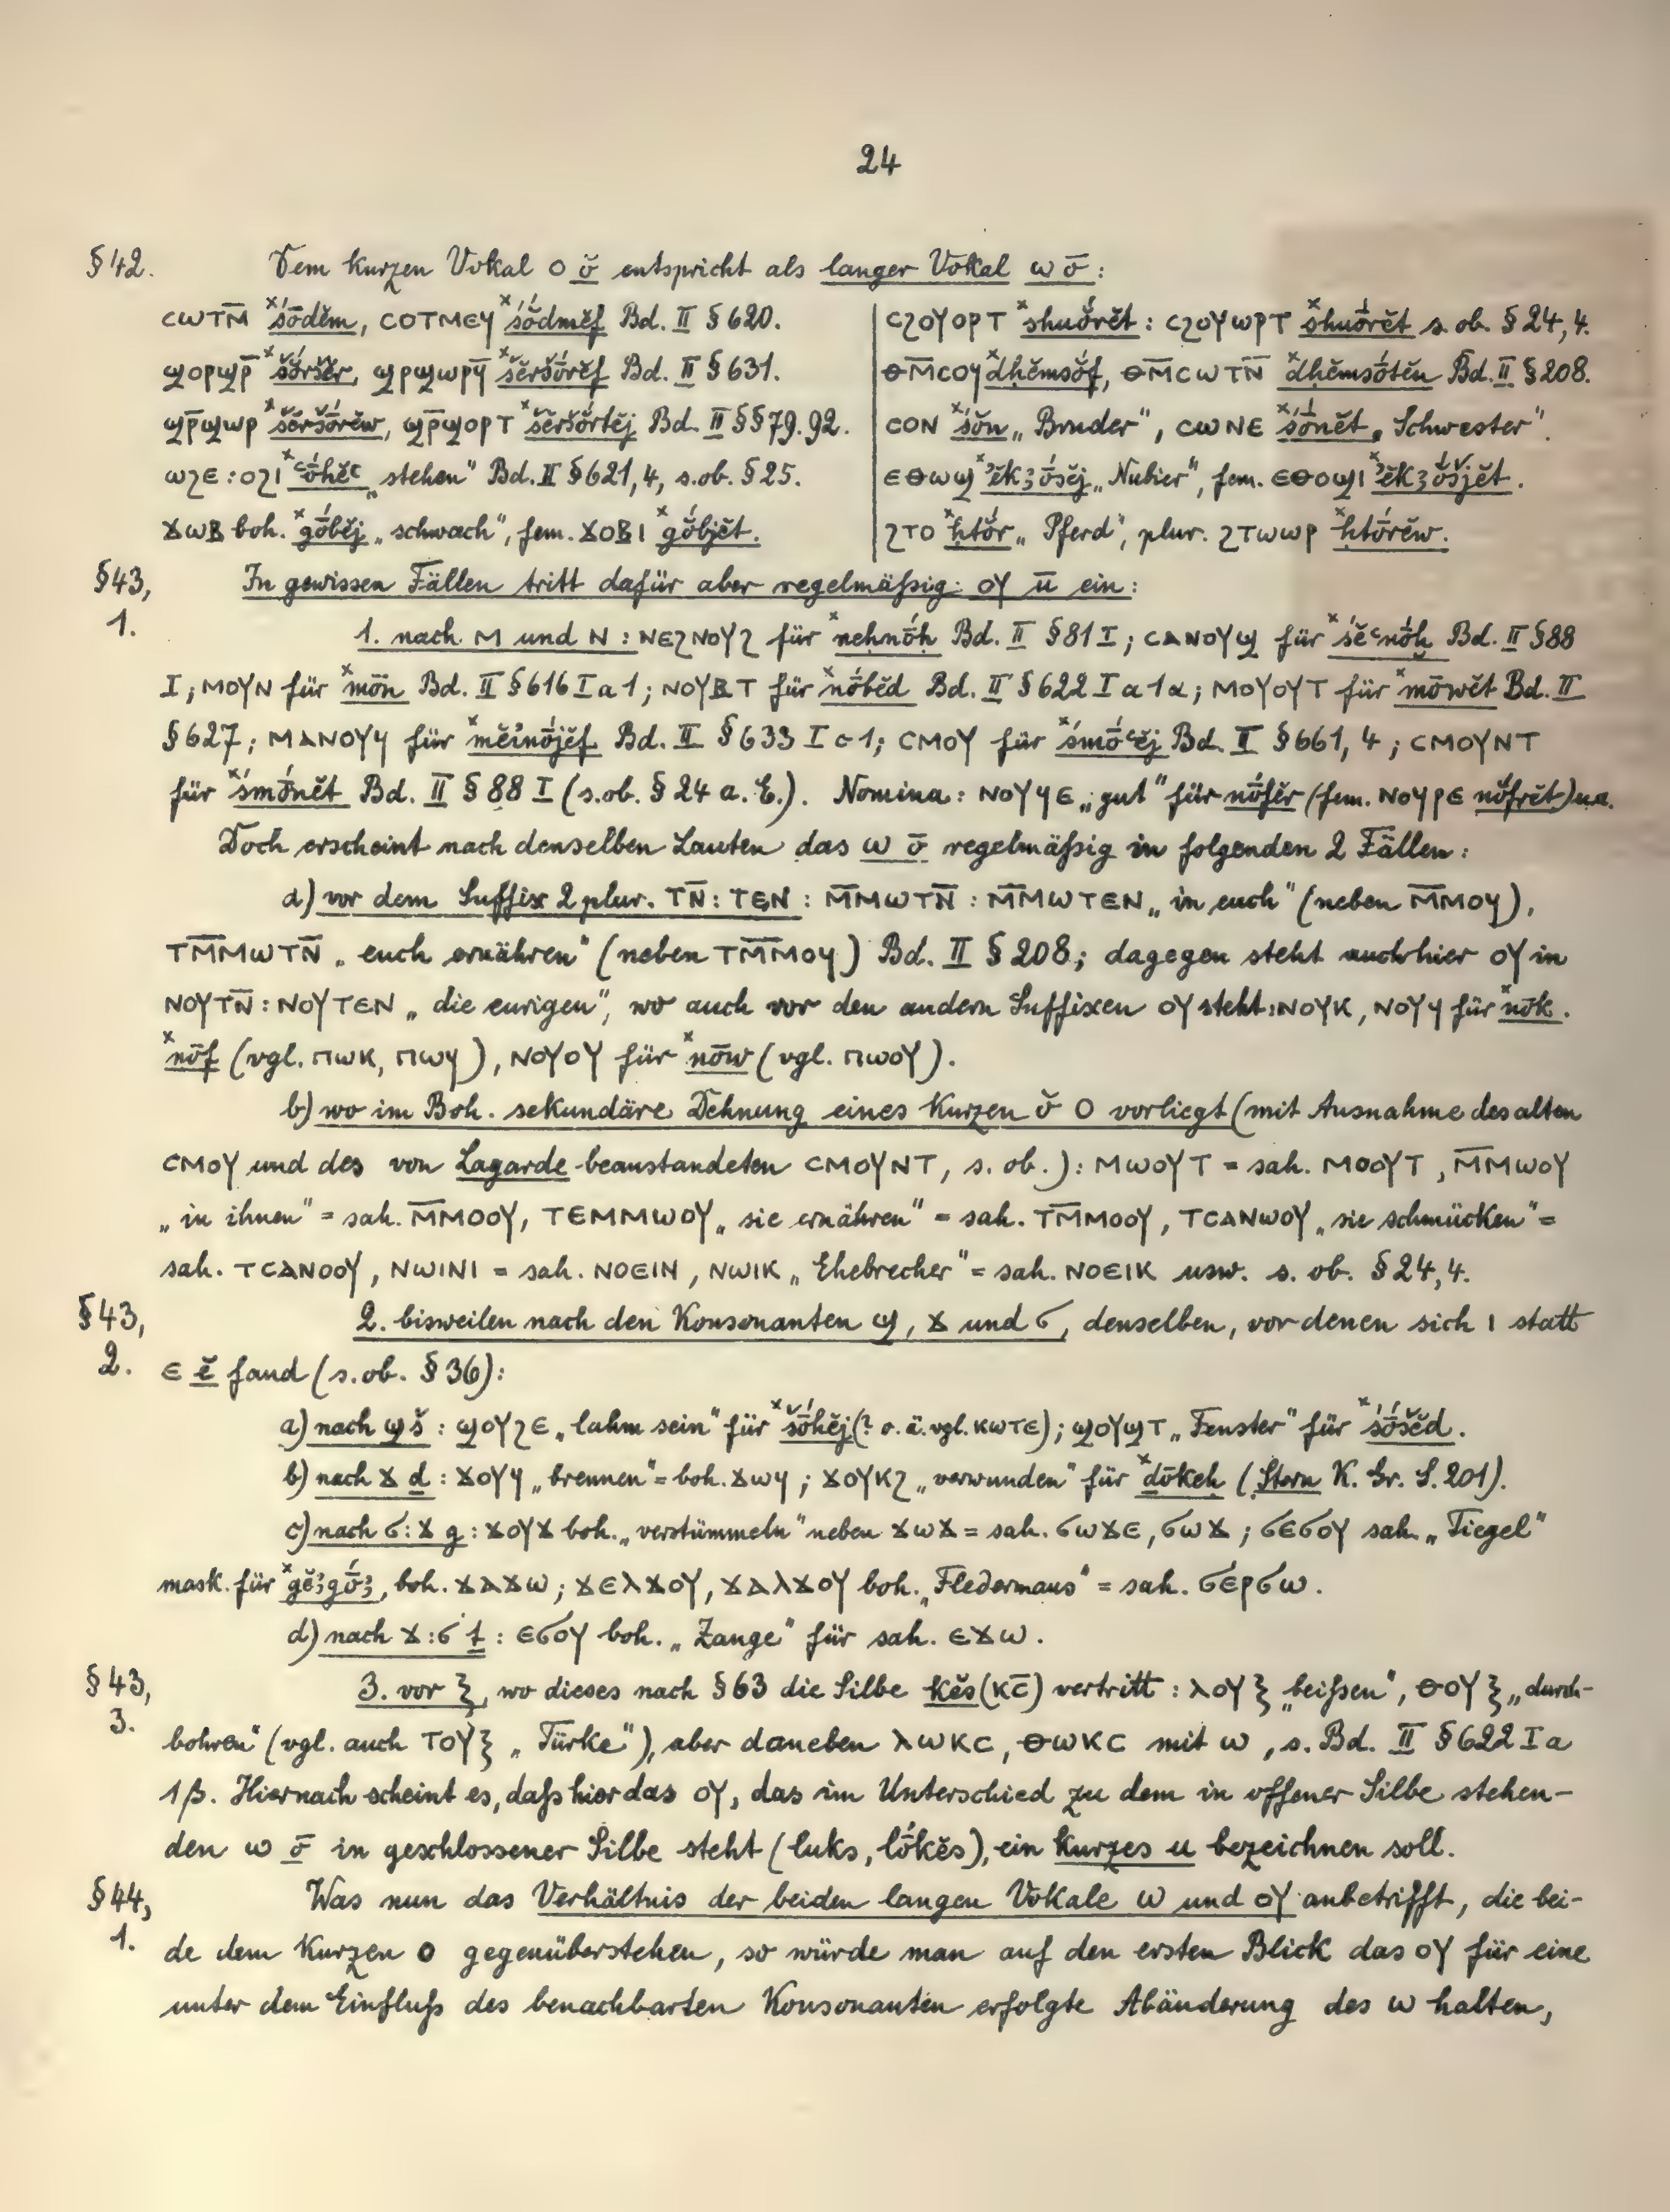 24
§ 42. Dem kurzen Vokal ο ŏ entspricht als langer Vokal ω ō:
ⲥⲱⲧⲙ̅ ˣśṓdĕm, ⲥⲟⲧⲙⲉϥ ˣśŏ́dmĕf Bd. II § 620.
ϣⲟⲣϣⲣ̅ ˣšŏ́ršĕr, ϣⲣϣⲱⲣϥ̅ ˣšĕršṓrĕf Bd. II § 631.
ϣⲣ̅ϣⲱⲣ ˣšĕršṓrĕw, ϣⲣ̅ϣⲟⲣⲧ ˣšĕršŏ́rtĕj Bd. II §§ 79. 92.
ⲱϩⲉ : ⲟϩⲓ ˣꜥṓḥĕꜥ „stehen" Bd. II § 621, 4, s. ob. § 25.
ϫⲱⲃ boh. ˣgṓbĕj „schwach", fem. ϫⲟⲃⲓ ˣgŏ́bjĕt.
ⲥϩⲟⲩⲟⲣⲧ ˣshuŏ́rĕt : ⲥϩⲟⲩⲱⲣⲧ ˣshuṓrĕt s. ob. § 24, 4.
ⲑⲙ̅ⲥⲟϥ ˣdḥĕmsŏ́f, ⲑⲙ̅ⲥⲱⲧⲛ̅ ˣdḥĕmsṓtĕn Bd. II § 208.
ⲥⲟⲛ ˣśŏn „Bruder", ⲥⲱⲛⲉ ˣśṓnĕt „Schwester".
ⲉⲑⲱϣ ˣʾĕkꜣṓšĕj „Nubier", fem. ⲉⲑⲟϣⲓ ˣʾĕkꜣŏ́šjĕt.
ϩⲧⲟ ˣḥtŏ́r „Pferd", plur. ϩⲧⲱⲱⲣ ˣḥtṓrĕw.
§ 43, In gewissen Fällen tritt dafür aber regelmäßig ⲟⲩ ū ein:
1. 1. nach ⲙ und ⲛ : ⲛⲉϩⲛⲟⲩϩ für ˣnehnṓḥ Bd. II § 81 I ; ⲥⲁⲛⲟⲩϣ für ˣśĕꜥnṓḫ Bd. II § 88
I ; ⲙⲟⲩⲛ für ˣmōn Bd. II § 616 I a 1 ; ⲛⲟⲩⲃⲧ für ˣnṓbĕd Bd. II § 622 I a 1 α ; ⲙⲟⲩⲟⲩⲧ für ˣmōwĕt Bd. II
§ 627 ; ⲙⲁⲛⲟⲩϥ für ˣmĕꜥnṓjĕf Bd. II § 633 I c 1 ; ⲥⲙⲟⲩ für ˣśmṓꜥĕj Bd. II § 661, 4 ; ⲥⲙⲟⲩⲛⲧ
für ˣśmṓnĕt Bd. II § 88 I (s. ob. § 24 a. E.). Nomina : ⲛⲟⲩϥⲉ „gut" für nṓfĕr (fem. ⲛⲟϥⲣⲉ nŏ́frĕt) u.a.
Doch erscheint nach denselben Lauten das ω ō regelmäßig in folgenden 2 Fällen :
a) vor dem Suffix 2 plur. ⲧⲛ̅ : ⲧⲉⲛ : ⲙ̅ⲙⲱⲧⲛ̅ : ⲙ̅ⲙⲱⲧⲉⲛ „in euch" (neben ⲙ̅ⲙⲟϥ),
ⲧⲙ̅ⲙⲱⲧⲛ̅ „euch ernähren" (neben ⲧⲙ̅ⲙⲟϥ) Bd. II § 208; dagegen steht auch hier ⲟⲩ in
ⲛⲟⲩⲧⲛ̅ : ⲛⲟⲩⲧⲉⲛ „die eurigen", wo auch vor den andern Suffixen ⲟⲩ steht : ⲛⲟⲩⲕ, ⲛⲟⲩϥ für ˣnōk.
ˣnōf (vgl. ⲡⲱⲕ, ⲡⲱϥ), ⲛⲟⲩⲟⲩ für ˣnōw (vgl. ⲡⲱⲟⲩ).
b) wo im Boh. sekundäre Dehnung eines kurzen ŏ ο vorliegt (mit Ausnahme des alten
ⲥⲙⲟⲩ und des von Lagarde beanstandeten ⲥⲙⲟⲩⲛⲧ, s. ob.) : ⲙⲱⲟⲩⲧ = sah. ⲙⲟⲟⲩⲧ, ⲙ̅ⲙⲱⲟⲩ
„in ihnen" = sah. ⲙ̅ⲙⲟⲟⲩ, ⲧⲉⲙⲙⲱⲟⲩ „sie ernähren" = sah. ⲧⲙ̅ⲙⲟⲟⲩ, ⲧⲥⲁⲛⲱⲟⲩ „sie schmücken" =
sah. ⲧⲥⲁⲛⲟⲟⲩ, ⲛⲱⲓⲛⲓ = sah. ⲛⲟⲉⲓⲛ, ⲛⲱⲓⲕ „Ehebrecher" = sah. ⲛⲟⲉⲓⲕ usw. s. ob. § 24, 4.
§ 43, 2. bisweilen nach den Konsonanten ϣ, ϫ und ϭ, denselben, vor denen sich ⲓ statt
2. ⲉ ĕ fand (s. ob. § 36) :
a) nach ϣ š : ϣⲟⲩϩⲉ „lahm sein" für ˣšṓhĕj (? o. ä. vgl. ⲕⲱⲧⲉ) ; ϣⲟⲩϣⲧ „Fenster" für ˣśṓšĕd.
b) nach ϫ ḏ : ϫⲟⲩϥ „brennen" = boh. ϫⲱϥ ; ϫⲟⲩⲕϩ „verwunden" für ˣḏōkeh (Stern K. Gr. S. 201).
c) nach ϭ : ϫ g : ϫⲟⲩϫ boh. „verstümmeln" neben ϫⲱϫ = sah. ϭⲱϫⲉ, ϭⲱϫ ; ϭⲉϭⲟⲩ sah. „Tiegel"
mask. für ˣgĕꜣgṓꜣ, boh. ϫⲁϫⲱ ; ϫⲉⲗϫⲟⲩ, ϫⲁⲗϫⲟⲩ boh. „Fledermaus" = sah. ϭⲉⲣϭⲱ.
d) nach ϫ : ϭ ṯ : ⲉϭⲟⲩ boh. „Zange" für sah. ⲉϫⲱ.
§ 43, 3. vor ⲝ, wo dieses nach § 63 die Silbe kĕs (ⲕⲥ̅) vertritt : ⲗⲟⲩⲝ „beißen", ⲑⲟⲩⲝ „durch-
3. bohren" (vgl. auch ⲧⲟⲩⲝ „Türke"), aber daneben ⲗⲱⲕⲥ, ⲑⲱⲕⲥ mit ω, s. Bd. II § 622 I a
1 β. Hiernach scheint es, daß hier das ⲟⲩ, das im Unterschied zu dem in offener Silbe stehen-
den ω ō in geschlossener Silbe steht (luks, lṓkĕs), ein kurzes u bezeichnen soll.
§ 44, Was nun das Verhältnis der beiden langen Vokale ω und ⲟⲩ anbetrifft, die bei-
1. de dem kurzen ο gegenüberstehen, so würde man auf den ersten Blick das ⲟⲩ für eine
unter dem Einfluß des benachbarten Konsonanten erfolgte Abänderung des ω halten,